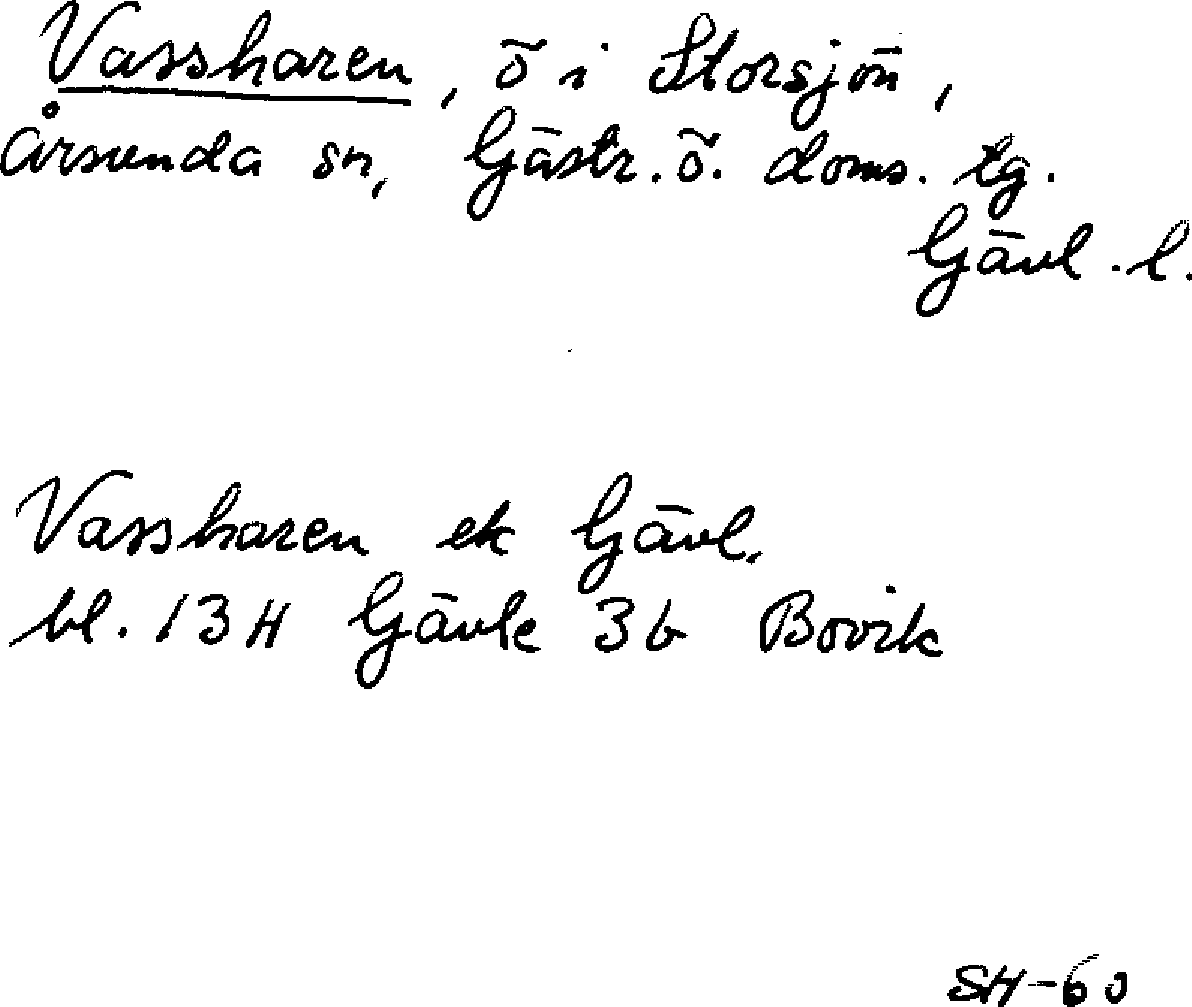 Vassharen, ö i Storsjön,
Årsunda sn, Gästr. ö. doms. tg.
Gävl. l.
Vassharen ek Gävl.
bl. 13H Gävle 3b Bovik
SH-60